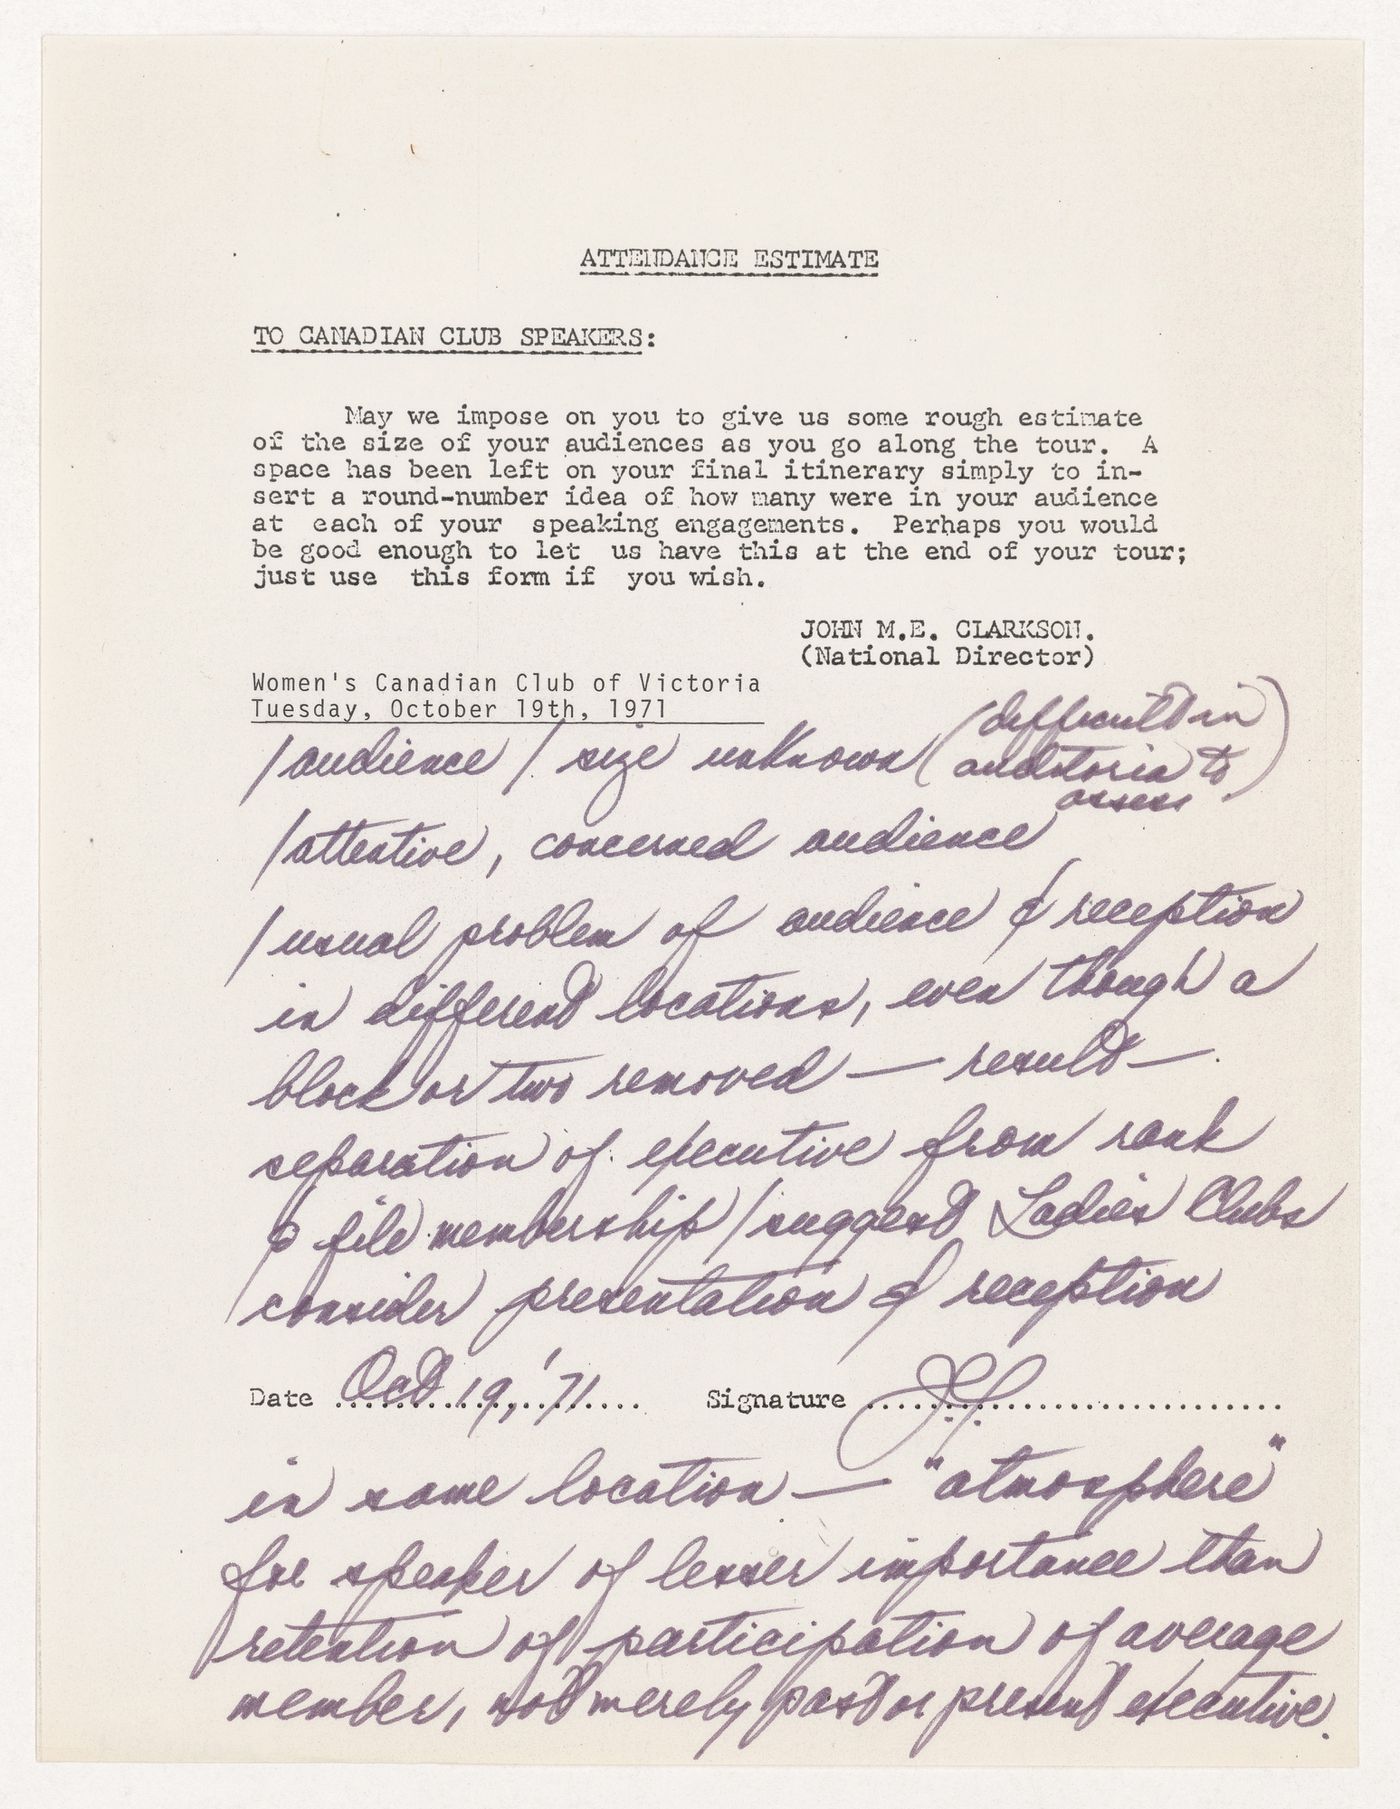 ATTENDANCE ESTIMATE
TO CANADIAN CLUB SPEAKERS:
May we impose on you to give us some rough estimate
of the size of your audiences as you go along the tour. A
space has been left on your final itinerary simply to in-
sert a round-number idea of how many were in your audience
at each of your speaking engagements. Perhaps you would
be good enough to let us have this at the end of your tour;
just use this form if you wish.
JOHN M.E. CLARKSON.
(National Director)
Women's Canadian Club of Victoria
Tuesday, October 19th, 1971
/audience / size unknown (difficult in
auditoria to
assess)
/attentive, concerned audience
/usual problem of audience & reception
in different locations, even though a
block or two removed — result —
separation of executive from rank
& file membership/suggest Ladies Clubs
consider presentation & reception
Date Oct 19, '71 Signature
in same location — "atmosphere"
for speaker of lesser importance than
retention of participation of average
member, not merely past or present executive.